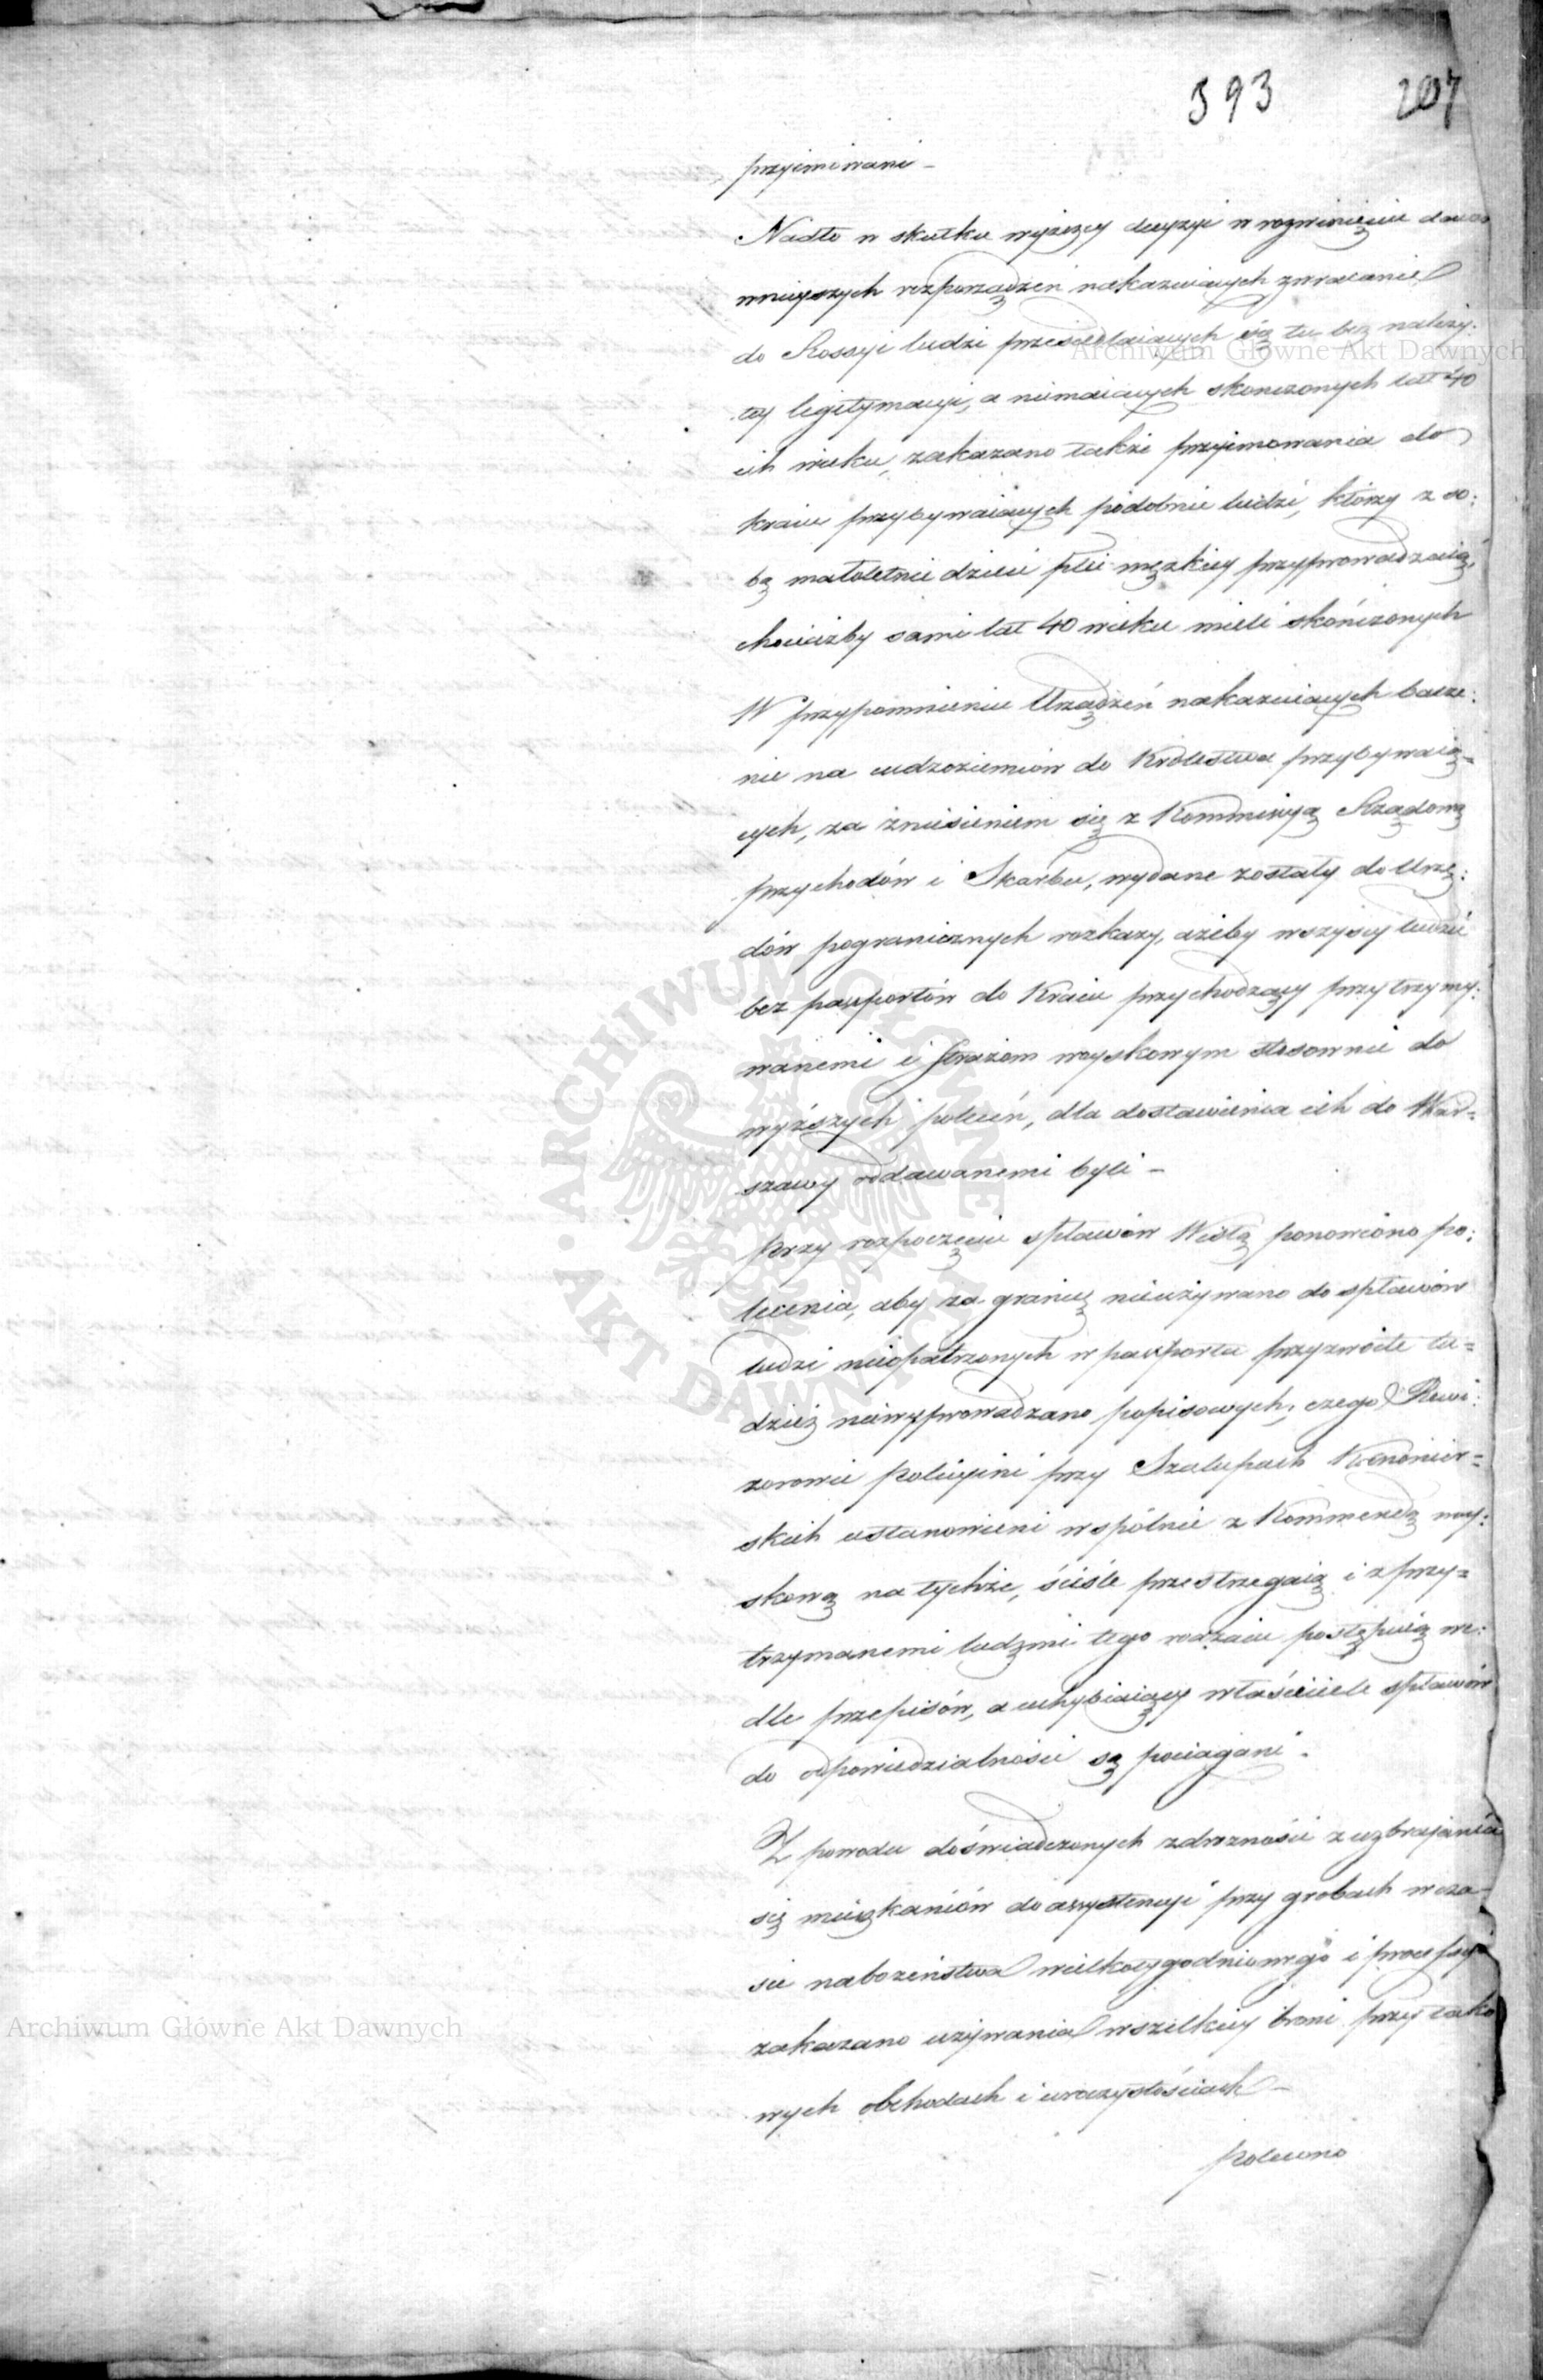 393 207
przyimowani –
Nadto w skutku wyższey decyzyi w rozwinięciu daw
wnieyszych rozporządzeń nakazuiących zwracanie
do Rossyi ludzi przesiedlaiących się tu bez należy:
tey legitymacyi, a niemaiących skonczonych lat 40
ich wieku, zakazano także przyimowania do
kraiu przybywaiących podobnie ludzi, którzy z so:
bą małoletnie dzieci płci męzkiey przyprowadzaią,
chociażby sami lat 40 wieku mieli skończonych
W przypomnieniu Urządzeń nakazuiących bacze:
nie na cudzoziemców do Królestwa przybywaią=
cych, za zniesieniem się z Kommissyą Rządową
przychodów i Skarbu, wydane zostały do Urzę:
dów pogranicznych rozkazy, ażeby wszyscy ludzie
bez pasportów do Kraiu przychodzący przytrzymy:
wanemi i strażom woyskowym stosownie do
wyższych poleceń, dla dostawienia ich do War=
szawy oddawanemi byli –
Przy rozpoczęciu spławów Wisłą ponowiono po:
lecenia, aby za granicę nieużywano do spławów
ludzi nieopatrzonych w pasporta przyzwoite tu=
dzież niewyprowadzano popisowych, czego Rewi:
zorowie policyini przy Szalupach Kanonier=
skich ustanowieni wspólnie z Kommendą woy:
skową na tychże, ściśle przestrzegaią i z przy=
trzymanemi ludźmi tego rodzaiu postępuią we:
dle przepisów, a uchybiaiący właściciele spławów
do odpowiedzialności są pociągani.
Z powodu doświadczonych zdrożności z uzbrajania
się mieszkańców do assystencyi przy grobach w cza=
sie nabożeństwa wielkotygodniowego i processyi
zakazano używania wszelkiey broni przy tako
wych obchodach i uroczystościach –
Polecono
Archiwum Główne Akt Dawnych
Archiwum Główne Akt Dawnych
ARCHIWUM GŁÓWNE AKT DAWNYCH